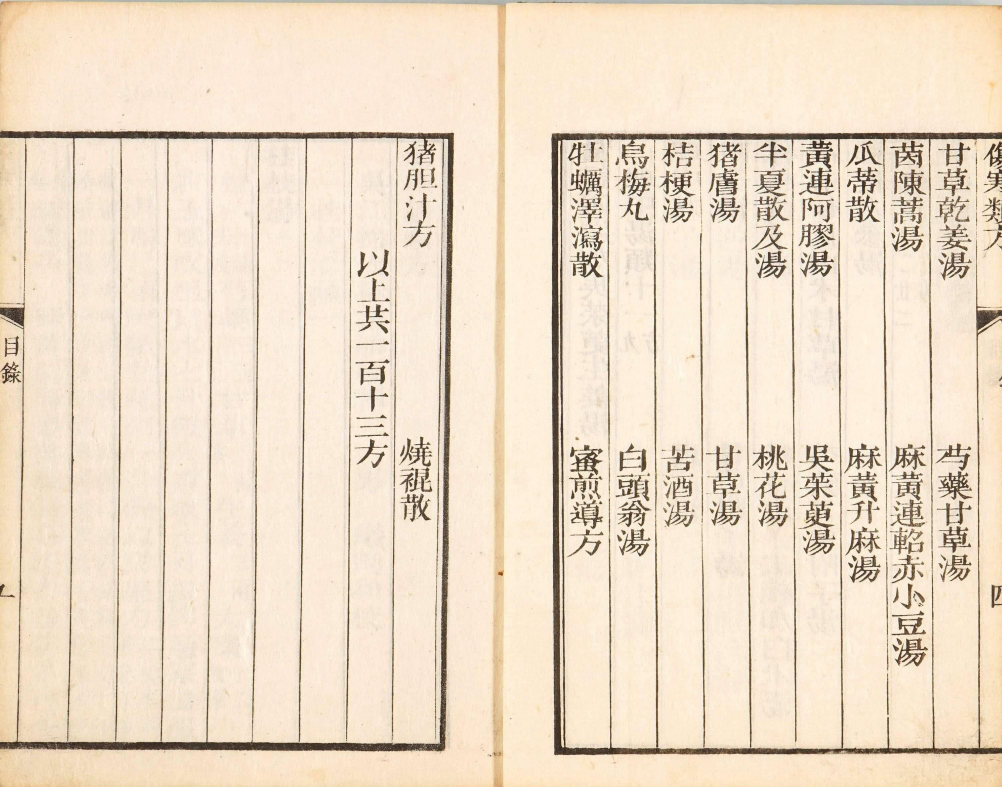 傷寒類方
四
甘草乾姜湯 芍藥甘草湯
茵陳蒿湯 麻黃連軺赤小豆湯
瓜蒂散 麻黃升麻湯
黃連阿膠湯 吳茱萸湯
半夏散及湯 桃花湯
猪膚湯 甘草湯
桔梗湯 苦酒湯
烏梅丸 白頭翁湯
牡蠣澤瀉散 蜜煎導方
猪胆汁方 燒裩散
以上共一百十三方
目錄